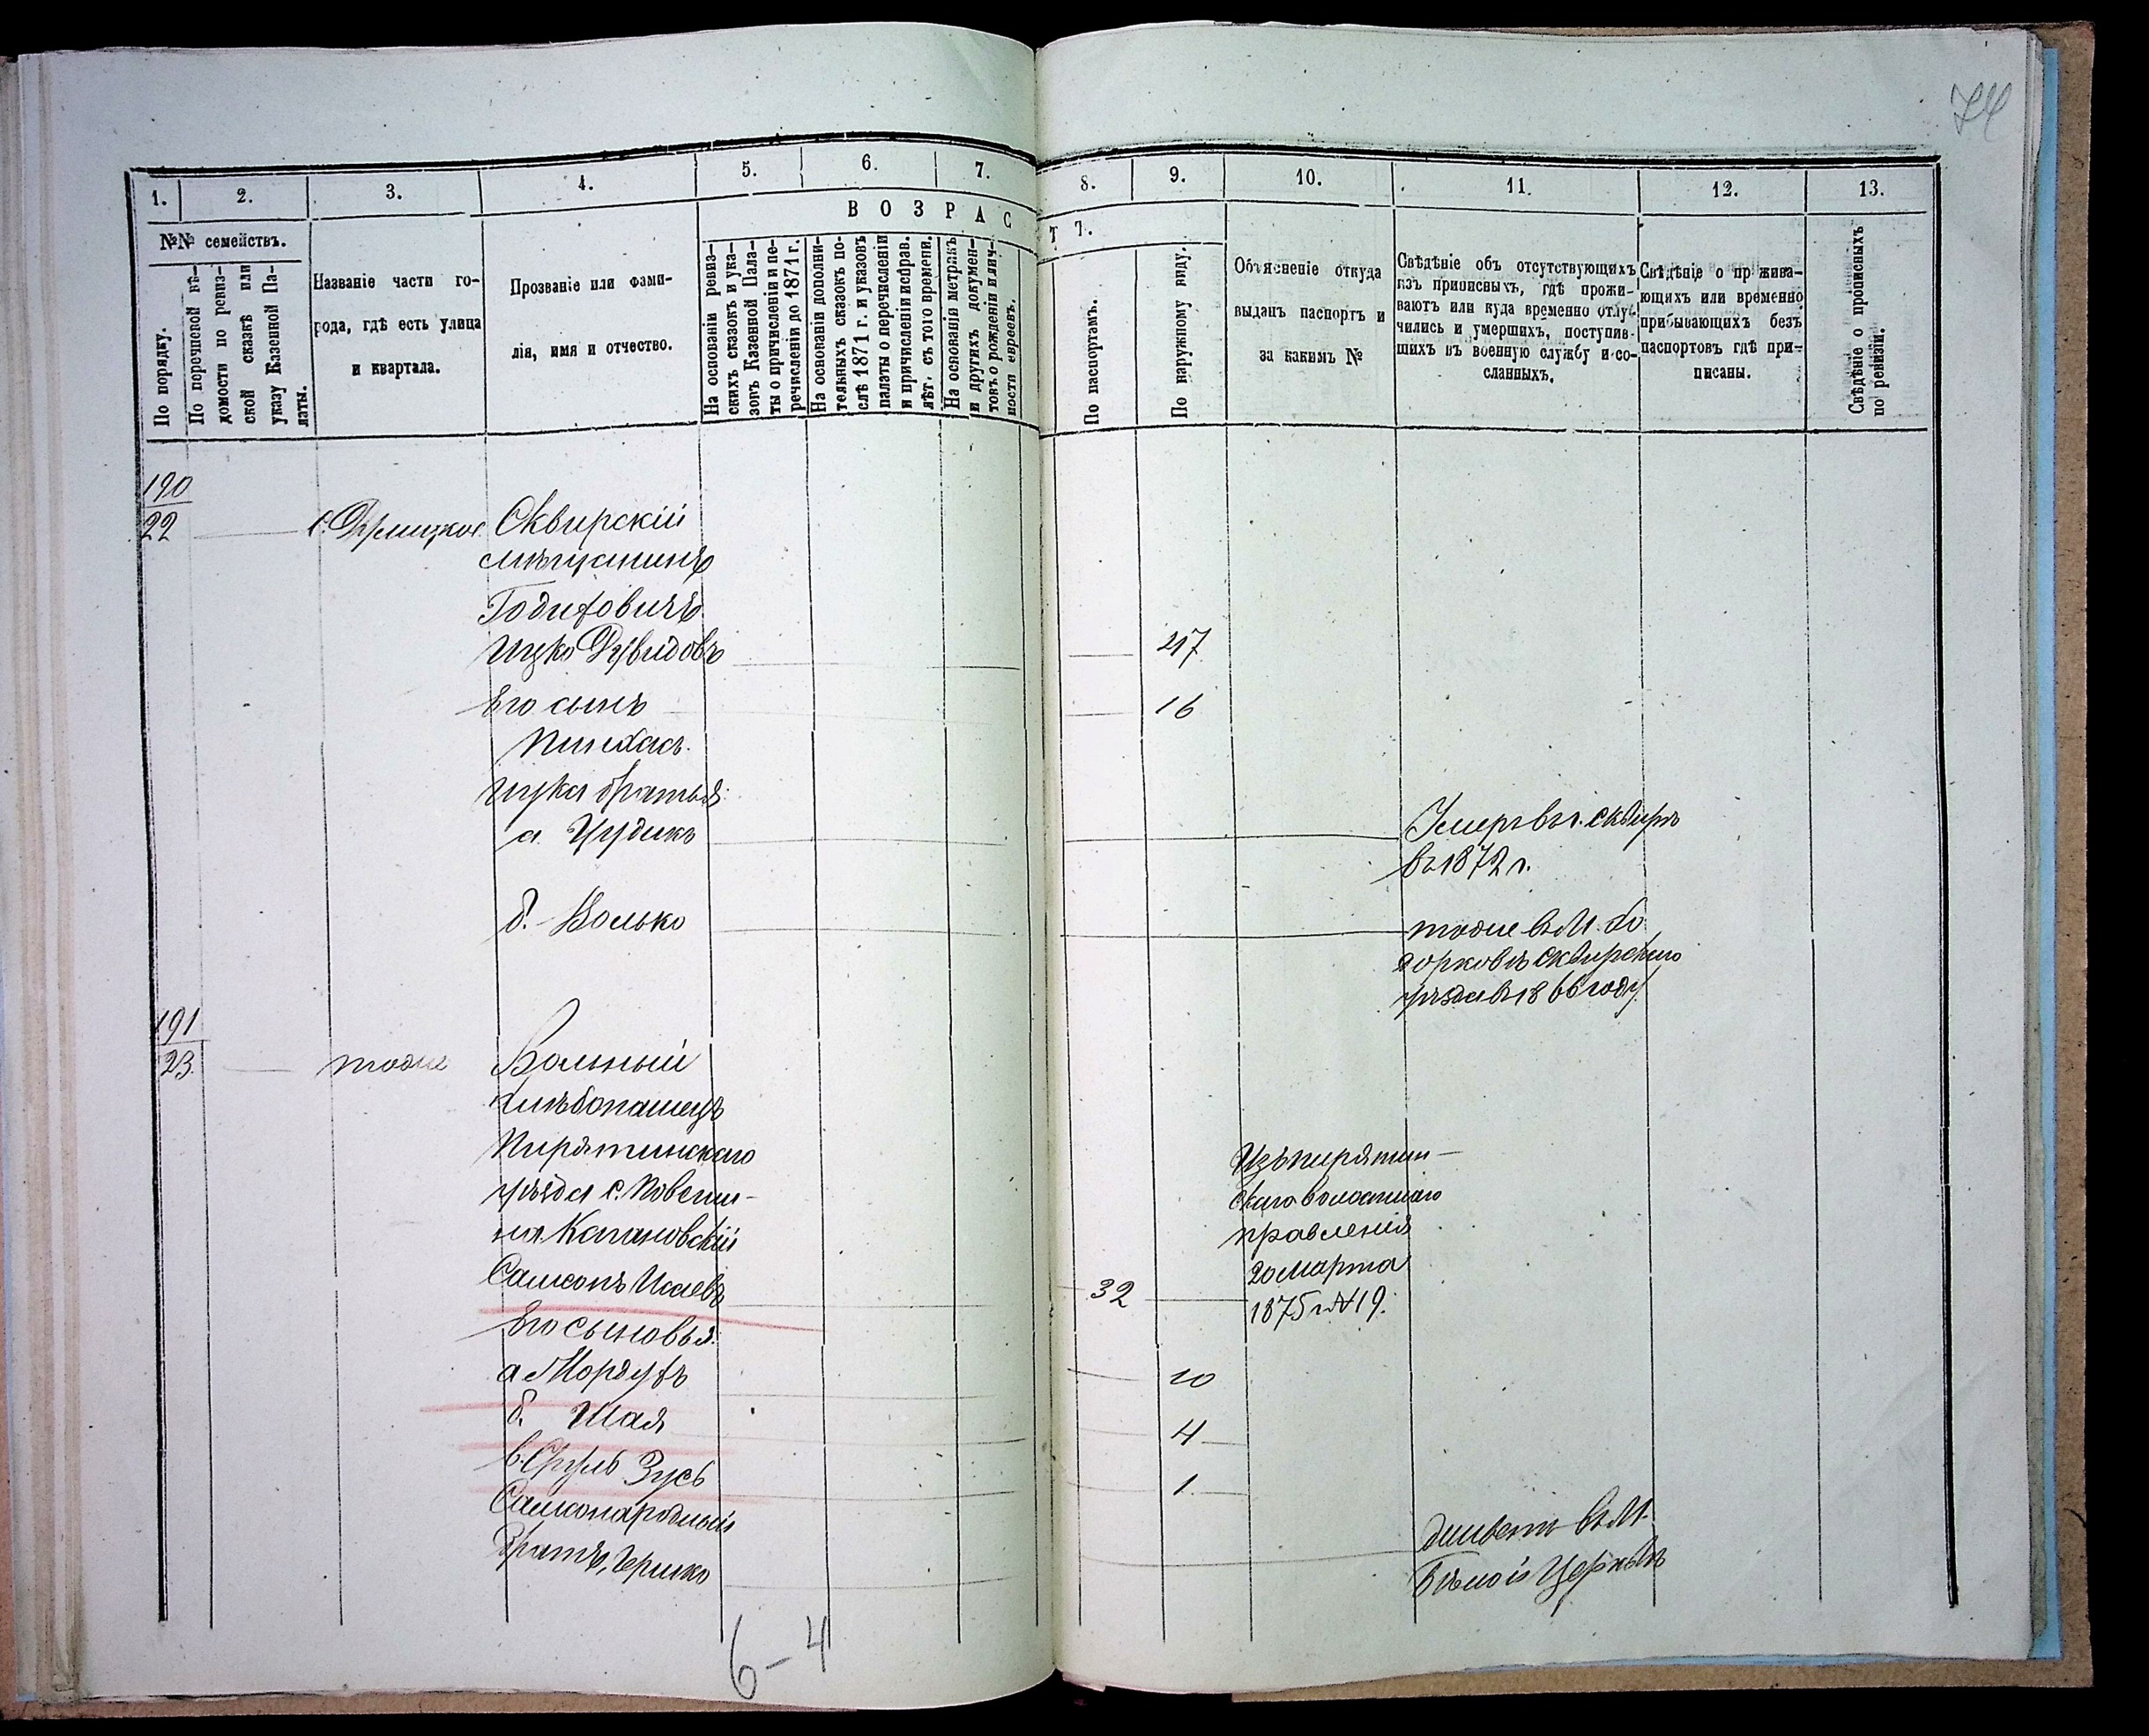 74
1.
2.
3.
4.
5.
6.
7.
8.
9.
10.
11.
12.
13.
№№ семействъ.
В О З Р А С
Т Ъ.
По порядку.
По перечневой вѣ-
домости по ревиз-
ской сказкѣ или
указу Казенной Па-
латы.
Названіе части го-
рода, гдѣ есть улица
и квартала.
Прозваніе или фами-
лія, имя и отчество.
На основаніи ревиз-
скихъ сказокъ и ука-
зовъ Казенной Пала-
ты о причисленіи и пе-
речисленіи до 1871 г.
На основаніи дополни-
тельныхъ сказокъ по-
слѣ 1871 г. и указовъ
палаты о перечисленіи
и причисленіи исправ.
лѣт. съ того времени.
На основаніи метрикъ
и другихъ докумен-
товъ о рожденіи и лич-
ности евреевъ.
По паспортамъ.
По наружному виду.
Объясненіе откуда
выданъ паспортъ и
за какимъ №
Свѣдѣніе объ отсутствующихъ
изъ приписныхъ, гдѣ прожи-
ваютъ или куда временно отлу-
чились и умершихъ, поступив-
шихъ въ военную службу и со-
сланныхъ.
Свѣдѣніе о прожива-
ющихъ или временно
прибывающихъ безъ
паспортовъ гдѣ при-
писаны.
Свѣдѣніе о прописныхъ
по ревизіи.
190
22
Сквирскій
мѣщанинъ
Ицко Дувидовъ
27
Его сынъ
16
Пинхасъ
Ицка братья:
а Иудикъ
Умеръ въ г. Сквирѣ
въ 1872 г.
б. Волько
тоже в М. Хо
дорковѣ Сквирскаго
уѣзда в 1866 году
191
23.
тоже
Вольный
хлѣбопашецъ
Пирятинскаго
уѣзда с.
Кагановскій
Самсонъ Исаевъ
32
Изъ пирятин-
скаго волостнаго
правленія
20 марта
1875 г. № 19.
Его сыновья:
а Мордухъ
10
б. Шая
4
в. Сруль Зусь
1.
Самсона родный
братъ, Гершко
живетъ в М.
Бѣлой Церквѣ
6-4